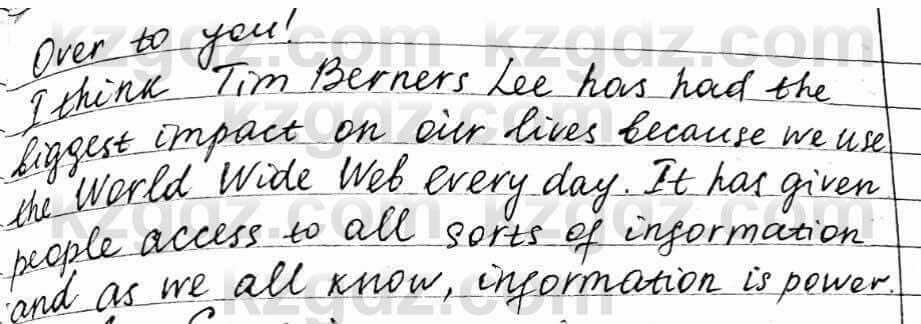 Over to you!
I think Tim Berners Lee has had the
biggest impact on our lives because we use
the World Wide Web every day. It has given
people access to all sorts of information
and as we all know, information is power.